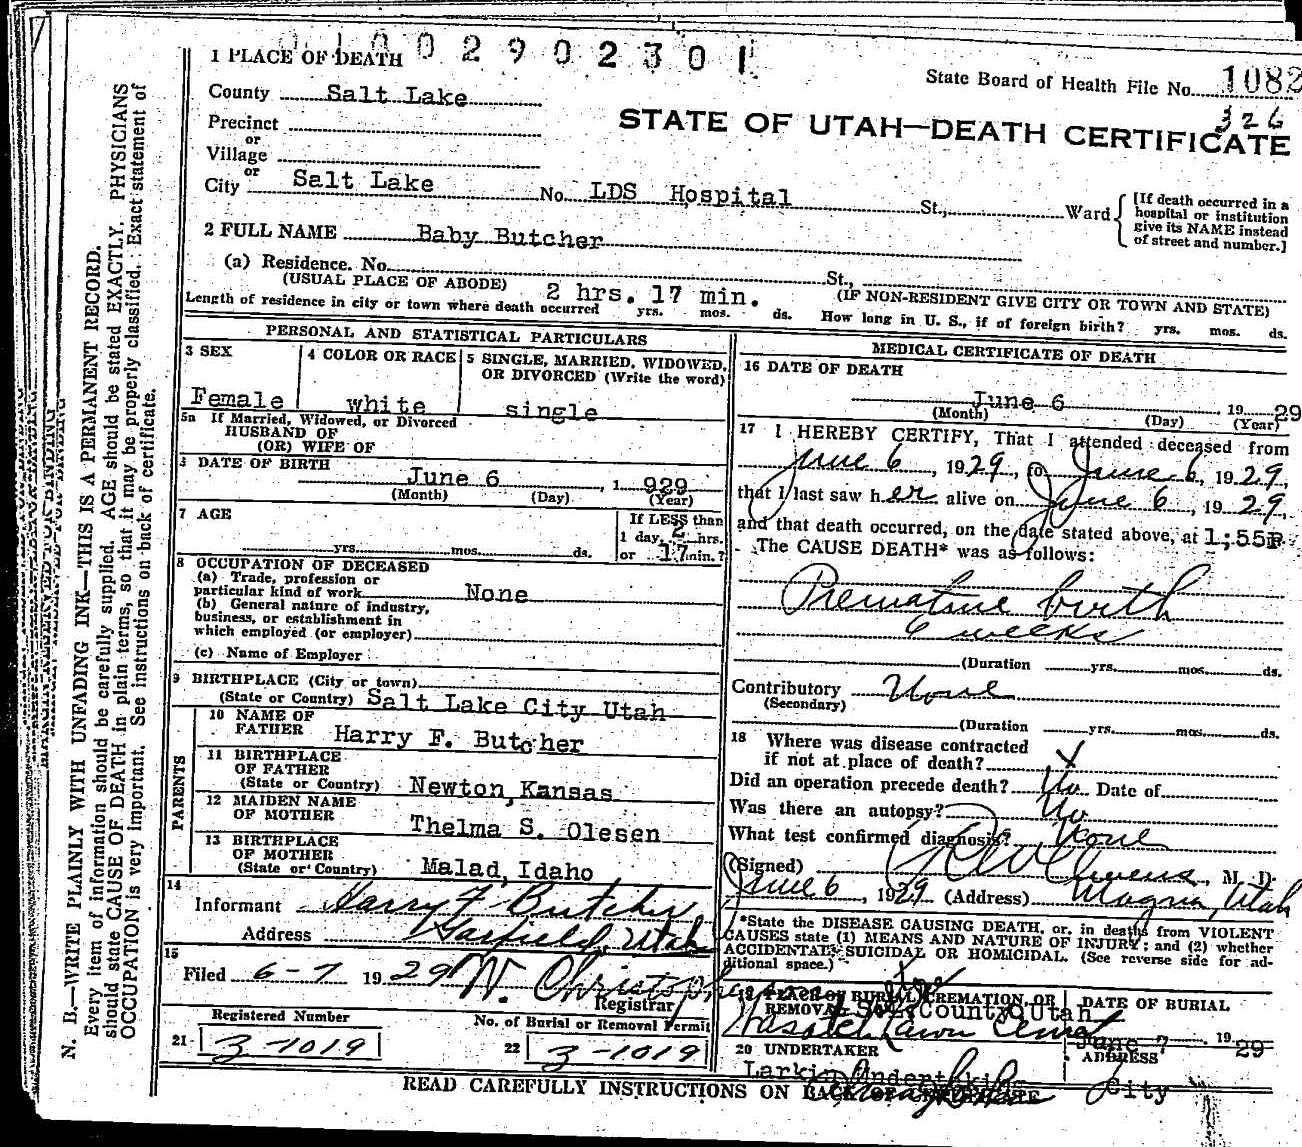 0 1 0 0 2 9 0 2 3 0 1
1 PLACE OF DEATH
State Board of Health File No. 1082
326
County Salt Lake
STATE OF UTAH—DEATH CERTIFICATE
Precinct
or
Village
or
City Salt Lake No. LDS Hospital St., Ward
[If death occurred in a hospital or institution give its NAME instead of street and number.]
2 FULL NAME Baby Butcher
(a) Residence. No. St.,
(USUAL PLACE OF ABODE) (IF NON-RESIDENT GIVE CITY OR TOWN AND STATE)
2 hrs. 17 min.
Length of residence in city or town where death occurred yrs. mos. ds. How long in U. S., if of foreign birth? yrs. mos. ds.
PERSONAL AND STATISTICAL PARTICULARS
3 SEX
Female
4 COLOR OR RACE
white
5 SINGLE, MARRIED, WIDOWED, OR DIVORCED (Write the word)
single
5a If Married, Widowed, or Divorced
HUSBAND OF
(OR) WIFE OF
DATE OF BIRTH
June 6, 1 929
(Month) (Day) (Year)
7 AGE
yrs. mos. ds.
If LESS than
1 day, 2 hrs.
or 17 min.?
8 OCCUPATION OF DECEASED
(a) Trade, profession or
particular kind of work None
(b) General nature of industry,
business, or establishment in
which employed (or employer)
(c) Name of Employer
9 BIRTHPLACE (City or town)
(State or Country) Salt Lake City Utah
PARENTS
10 NAME OF
FATHER Harry F. Butcher
11 BIRTHPLACE
OF FATHER
(State or Country) Newton, Kansas
12 MAIDEN NAME
OF MOTHER Thelma S. Olesen
13 BIRTHPLACE
OF MOTHER
(State or Country) Malad, Idaho
14
Informant Harry F Butcher
Address Garfield, Utah
15
Filed 6-7 1929 W. Christopherson
Registrar
Registered Number
21 3-1019
No. of Burial or Removal Permit
22 3-1019
MEDICAL CERTIFICATE OF DEATH
16 DATE OF DEATH
June 6 19 29
(Month) (Day) (Year)
17 I HEREBY CERTIFY, That I attended deceased from
June 6, 1929, to June 6, 1929,
that I last saw her alive on June 6, 1929,
and that death occurred, on the date stated above, at 1;55P.
The CAUSE DEATH* was as follows:
Premature birth
6 weeks
(Duration yrs. mos. ds.
Contributory None
(Secondary)
(Duration yrs. mos. ds.
18 Where was disease contracted
if not at place of death? X
Did an operation precede death? No Date of
Was there an autopsy? No
What test confirmed diagnosis? None
(Signed) Owens, M. D.
June 6, 1929 (Address) Magna, Utah
*State the DISEASE CAUSING DEATH, or, in deaths from VIOLENT
CAUSES state (1) MEANS AND NATURE OF INJURY; and (2) whether
ACCIDENTAL, SUICIDAL OR HOMICIDAL. (See reverse side for ad-
ditional space.)
19 PLACE OF BURIAL, CREMATION, OR
REMOVAL S.L. County Utah
Wasatch Lawn Cemet
DATE OF BURIAL
June 7 19 29
20 UNDERTAKER
Larkin Undertaking
ADDRESS
City
READ CAREFULLY INSTRUCTIONS ON BACK OF CERTIFICATE
N. B.—WRITE PLAINLY WITH UNFADING INK—THIS IS A PERMANENT RECORD.
Every item of information should be carefully supplied. AGE should be stated EXACTLY. PHYSICIANS
should state CAUSE OF DEATH in plain terms, so that it may be properly classified. Exact statement of
OCCUPATION is very important. See instructions on back of certificate.